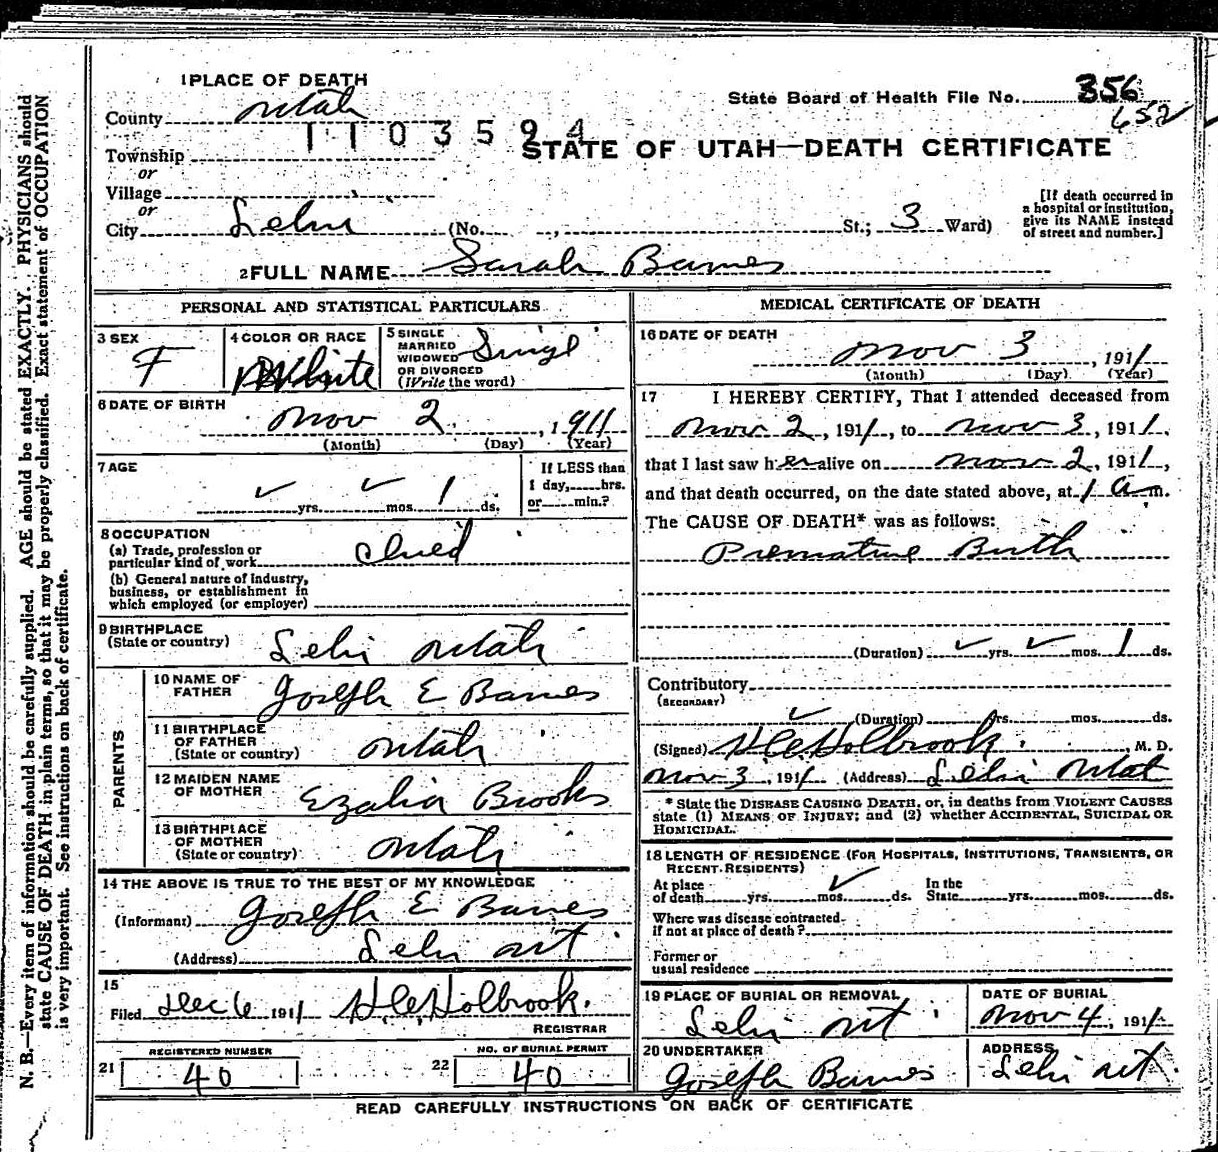 1 PLACE OF DEATH
County Utah
State Board of Health File No. 356
652
1103594
Township
or
Village
or
City Lehi (No. , St.; 3 Ward)
STATE OF UTAH—DEATH CERTIFICATE
[If death occurred in
a hospital or institution,
give its NAME instead
of street and number.]
2 FULL NAME Sarah Barnes
PERSONAL AND STATISTICAL PARTICULARS
3 SEX
F
4 COLOR OR RACE
White
5 SINGLE
MARRIED
WIDOWED
OR DIVORCED
(Write the word)
Singl
6 DATE OF BIRTH
Nov 2, 1911
(Month) (Day) (Year)
7 AGE
✓ yrs. ✓ mos. 1 ds.
If LESS than
1 day, hrs.
or min.?
8 OCCUPATION
(a) Trade, profession or
particular kind of work Chied
(b) General nature of industry,
business, or establishment in
which employed (or employer)
9 BIRTHPLACE
(State or country) Lehi Utah
PARENTS
10 NAME OF
FATHER Joseph E Barnes
11 BIRTHPLACE
OF FATHER
(State or country) Utah
12 MAIDEN NAME
OF MOTHER Ezalia Brooks
13 BIRTHPLACE
OF MOTHER
(State or country) Utah
14 THE ABOVE IS TRUE TO THE BEST OF MY KNOWLEDGE
(Informant) Joseph E Barnes
(Address) Lehi Ut
15
Filed Dec 6 1911 H C Holbrook.
REGISTRAR
REGISTERED NUMBER
21 40
NO. OF BURIAL PERMIT
22 40
MEDICAL CERTIFICATE OF DEATH
16 DATE OF DEATH
Nov 3, 1911
(Month) (Day) (Year)
17 I HEREBY CERTIFY, That I attended deceased from
Nov 2, 1911, to Nov 3, 1911,
that I last saw her alive on Nov 2, 1911,
and that death occurred, on the date stated above, at 1 a m.
The CAUSE OF DEATH* was as follows:
Premature Birth
(Duration) ✓ yrs. ✓ mos. 1 ds.
Contributory
(SECONDARY)
✓ (Duration) yrs. mos. ds.
(Signed) H C Holbrook, M. D.
Nov 3, 1911 (Address) Lehi Utah
* State the DISEASE CAUSING DEATH, or, in deaths from VIOLENT CAUSES
state (1) MEANS OF INJURY; and (2) whether ACCIDENTAL, SUICIDAL OR
HOMICIDAL.
18 LENGTH OF RESIDENCE (FOR HOSPITALS, INSTITUTIONS, TRANSIENTS, OR
RECENT RESIDENTS)
At place
of death yrs. ✓ mos. ds.
In the
State yrs. mos. ds.
Where was disease contracted
if not at place of death?
Former or
usual residence
19 PLACE OF BURIAL OR REMOVAL
Lehi Ut
DATE OF BURIAL
Nov 4, 1911
20 UNDERTAKER
Joseph Barnes
ADDRESS
Lehi Ut.
READ CAREFULLY INSTRUCTIONS ON BACK OF CERTIFICATE
N. B.—Every item of information should be carefully supplied. AGE should be stated EXACTLY. PHYSICIANS should
state CAUSE OF DEATH in plain terms, so that it may be properly classified. Exact statement of OCCUPATION
is very important. See instructions on back of certificate.